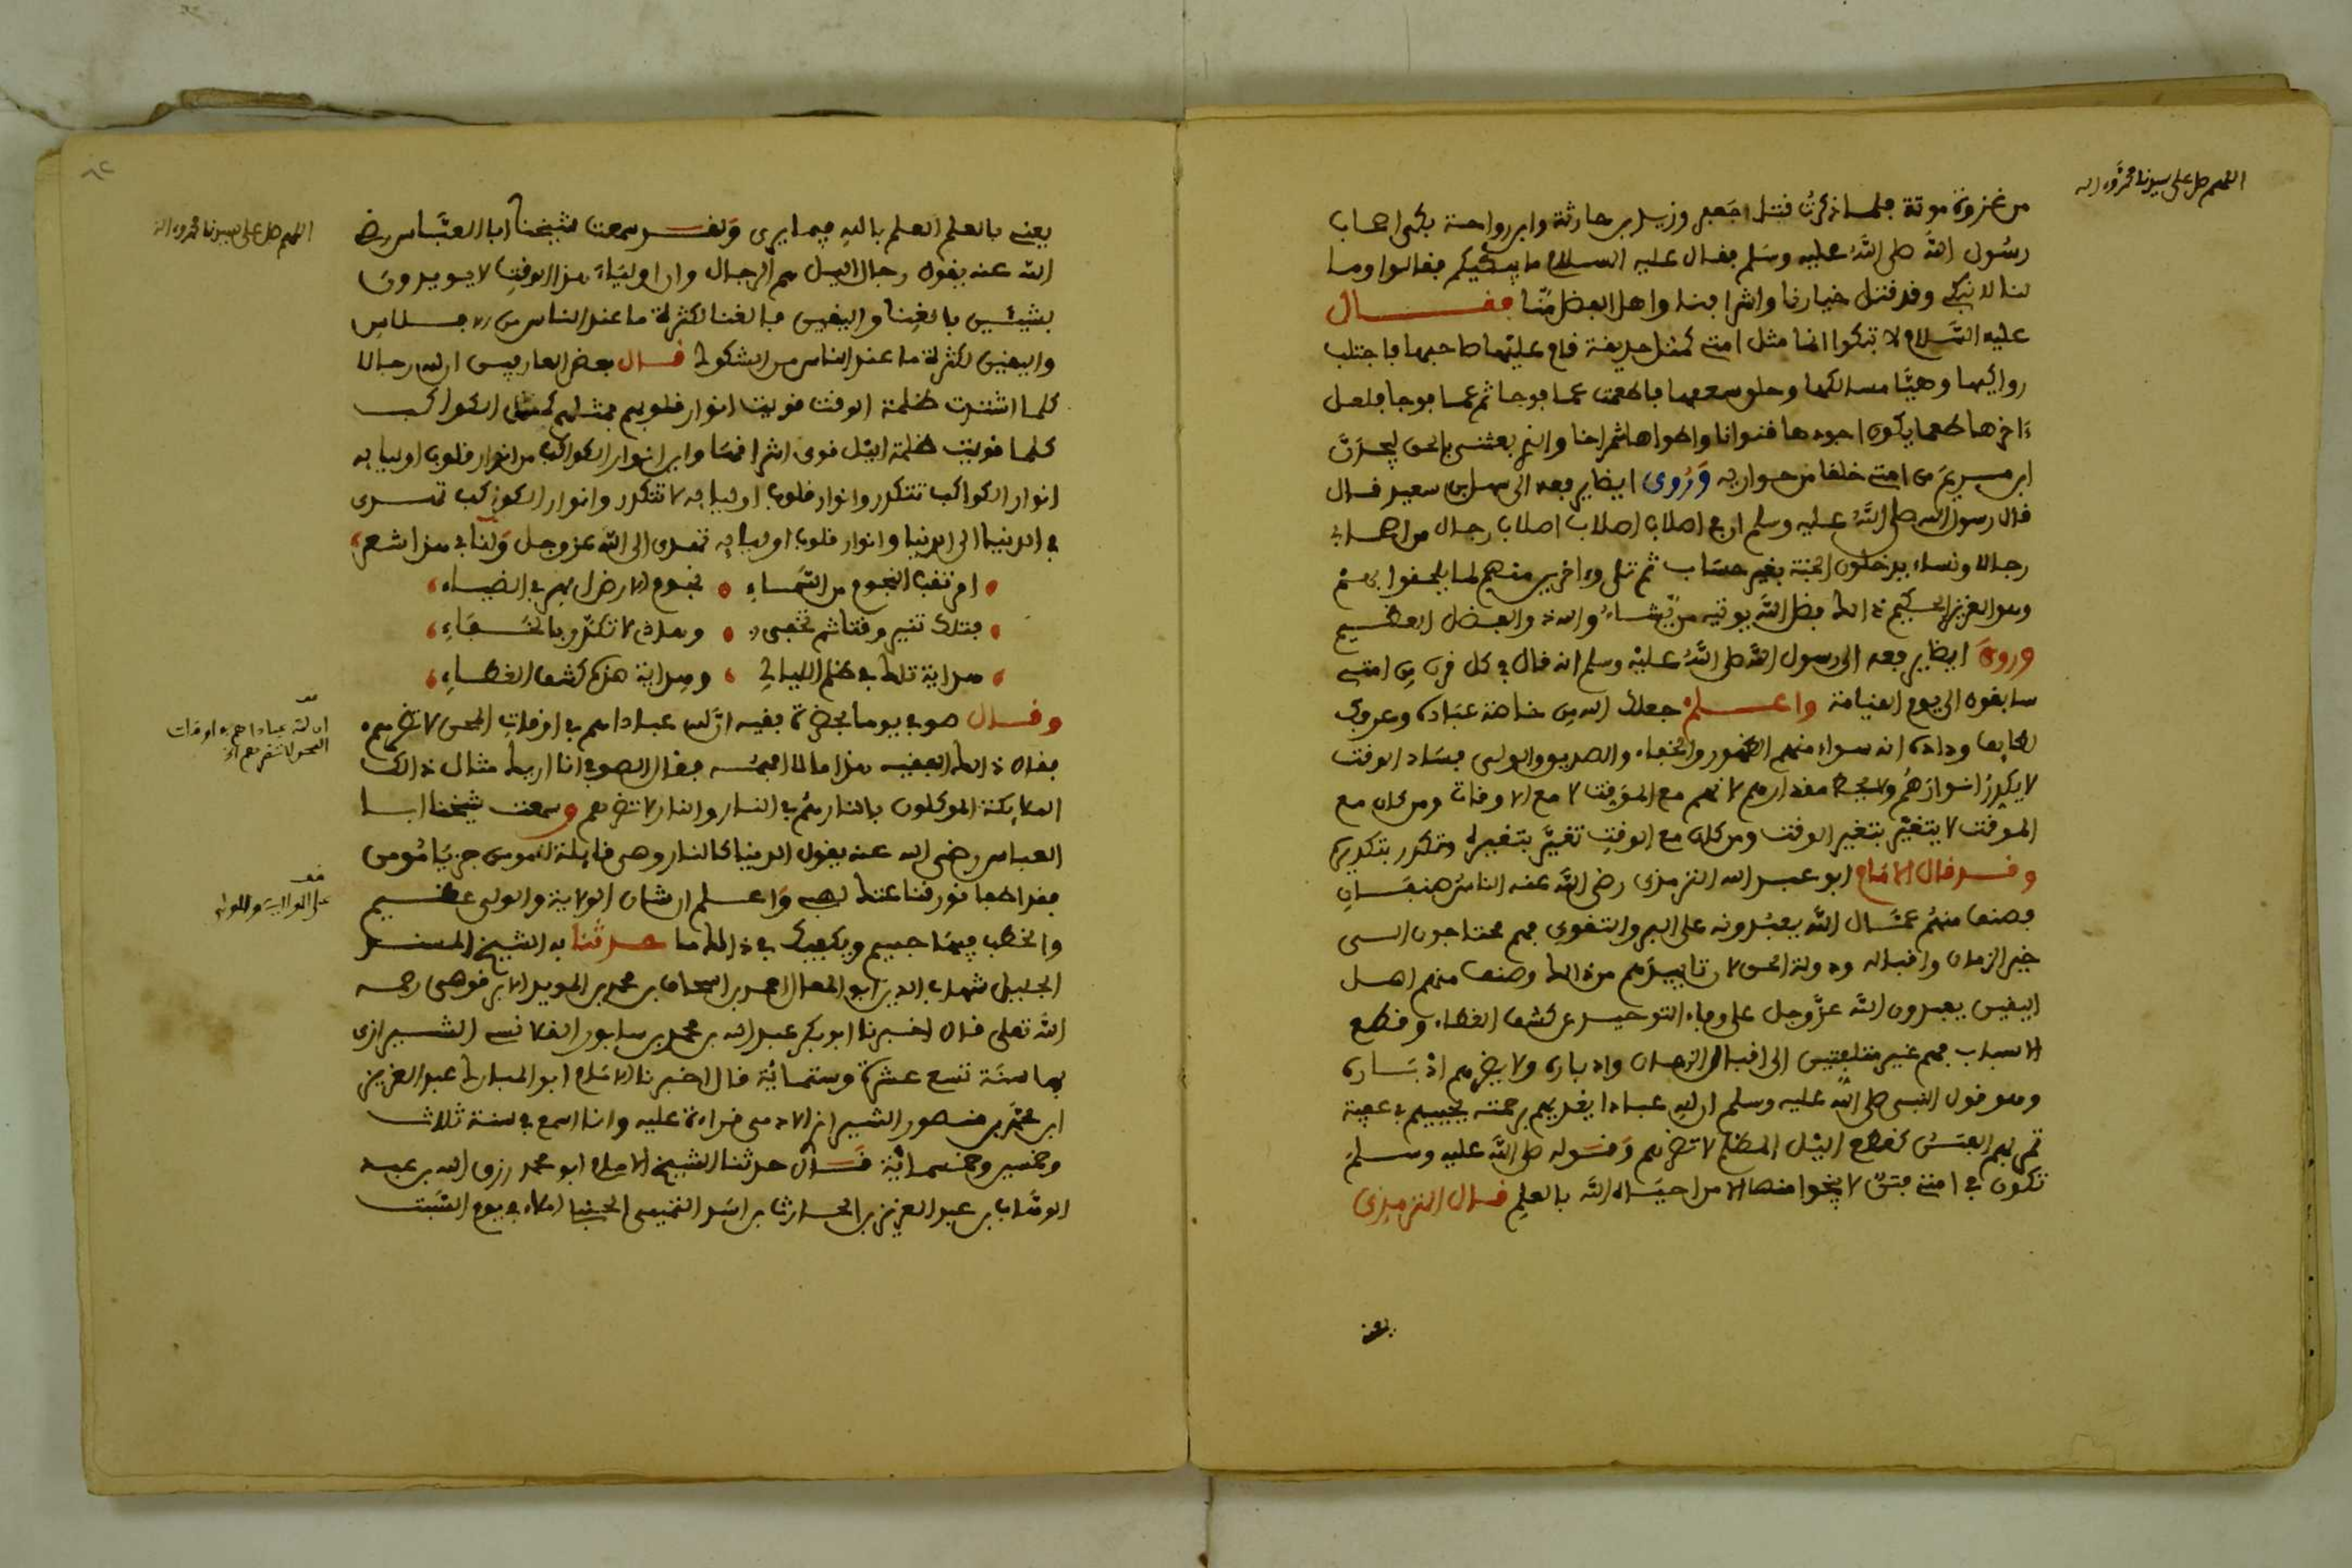 اللهم صل على سيدنا محمد وءاله
من غزوة موتة فلما ذكرت قتل جعفر وزيد بن حارثة وابن رواحة بكى اصحاب
رسول الله صلى الله عليه وسلم فقال عليه السلام ما يبكيكم فقالوا وما
لنا لا نبكي وقد قتل خيارنا واشرافنا واهل الفضل منا فقال
عليه السلام لا تبكوا انما مثل امتي كمثل حديقة قام عليها صاحبها فاجتلب
رواكيها وهيا مساكنها وحلق سعفها فاطعمت عاما فوجا ثم عاما فوجا فلعل
ءاخرها طعما يكون اجودها قنوانا واطولها شمراخا والذي بعثني بالحق ليجدن
ابن مريم من امتي خلفا من حواريه وروى ايضا يرفعه الى سهل بن سعيد قال
قال رسول الله صلى الله عليه وسلم ان في اصلاب اصلاب اصلاب رجال من اصحابي
رجالا ونساء يدخلون الجنة بغير حساب ثم تلى وءاخرين منهم لما يلحقوا بهم
وهو العزيز الحكيم ذالك فضل الله يوتيه من يشاء والله ذو الفضل العظيم
وروى ايضا يرفعه الى رسول الله صلى الله عليه وسلم انه قال في كل قرن من امتي
سابقون الى يوم القيامة واعلم جعلك الله من خاصة عباده وعرفك
لطايف وداده انه سواء منهم الظهور والخفاء والصديق والولي فساد الوقت
لا يكدر انوارهم ولا يحط مقدارهم لانهم مع الموقت لا مع الاوقات ومن كان مع
الموقت لا يتغير بتغير الوقت ومن كان مع الوقت تغير بتغيره وتكدر بتكديره
وقد قال الامام ابو عبد الله الترمذي رضي الله عنه الناس صنفان
فصنف منهم عمال الله يعبدونه على البر والتقوى فهم محتاجون الى
خير الزمان واقباله ودولة الحق لان تاييدهم من ذالك وصنف منهم اهل
اليقين يعبدون الله عز وجل على وفاء التوحيد عن كشف الغطاء وقطع
الاسباب فهم غير متلفتين الى اقبال الزمان وادباره ولا يضرهم ادباره
وهو قول النبي صلى الله عليه وسلم ان لله عبادا يغذيهم برحمته يحييهم في عافية
تمر بهم الفتن كقطع اليل المظلم لا تضرهم وقوله صلى الله عليه وسلم
تكون في امتي فتن لا ينجوا منها الا من احياه الله بالعلم قال الترمذي
يعني
اللهم صل على سيدنا محمد وءاله
يعني بالعلم العلم بالله فيما يرى ولقد سمعت شيخنا ابا العباس رضي
الله عنه يقول رجال اليل هم الرجال وان اولياء هذا الوقت لا يويدون
بشيئين بالغنا واليقين فبالغنا لكثرة ما عند الناس من الافلاس
واليقين لكثرة ما عند الناس من الشكوك قال بعض العارفين ان لله رجالا
كلما اشتدت ظلمة الوقت قويت انوار قلوبهم فمثلهم كمثل الكواكب
كلما قويت ظلمة اليل قوى اشراقها واين انوار الكواكب من انوار قلوب اوليايه
انوار الكواكب تتكدر وانوار قلوب اوليايه لا تتكدر وانوار الكواكب تهدى
في الدنيا الى الدنيا وانوار قلوب اوليايه تهدى الى الله عز وجل ولنا في هذا شعر
امرتقب النجوم من السماء نجوم الارض ابهر في الضياء
فتلك تنير وقتا ثم تخفى وهذه لا تكدر بالخفاء
هداية تلك في ظلم الليالي وهداية هذه كشف الغطاء
وقال صوفي يوما بحضرة فقيه ان لله عبادا هم في اوقات المحن لا تضرهم
فقال ذالك الفقيه هذا ما لا افهمه فقال الصوفي انا اريك مثال ذالك
الملايكة الموكلون بالنار هم في النار والنار لا تضرهم وسمعت شيخنا ابا
العباس رضي الله عنه يقول الدنيا كالنار وهي قايلة للمومن جز يا مومن
فقد اطفا نورك لهبي واعلم ان شان الولاية والولي عظيم
والخطب فيهما جسيم ويكفيك في ذالك ما حدثنا به الشيخ المسند
الجليل شهاب الدين ابو المعالي احمد بن اسحاق بن محمد بن المويد الابرقوهي رحمه
الله تعلى قال اخبرنا ابو بكر عبد الله بن محمد بن سابور القلانسي الشيرازي
بها سنة تسع عشرة وستماية قال اخبرنا الامام ابو المبارك عبد العزيز
ابن محمد بن منصور الشيرازي الادمي قراءة عليه وانا اسمع في سنة ثلاث
وخمسين وخمسماية قال حدثنا الشيخ الامام ابو محمد رزق الله بن عبد
الوهاب بن عبد العزيز بن الحارث بن اسد التميمي الحنبلي املاء في يوم السبت
ان لله عبادا هم في اوقات
المحن لا تضرهم